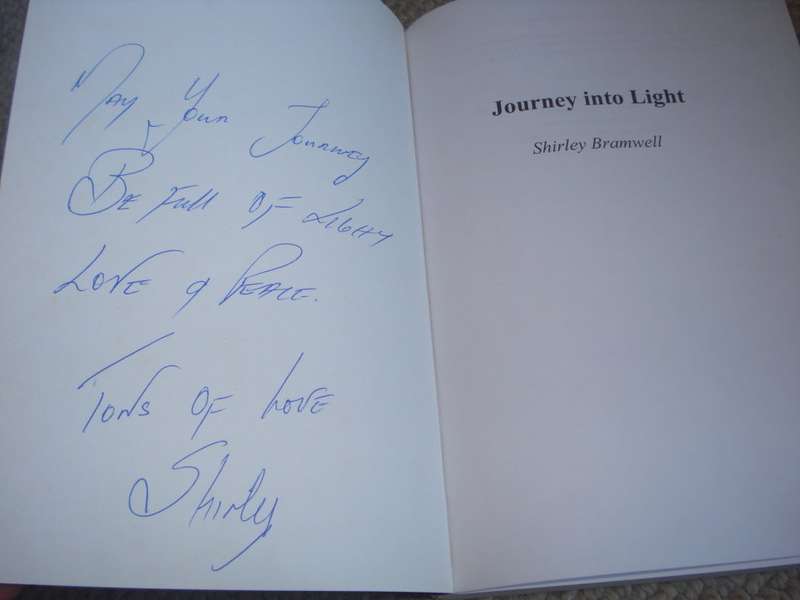 May Your Journey
Be Full OF LIGHT
LOVE & PEACE.
TONS OF LOVE
Shirley
Journey into Light
Shirley Bramwell